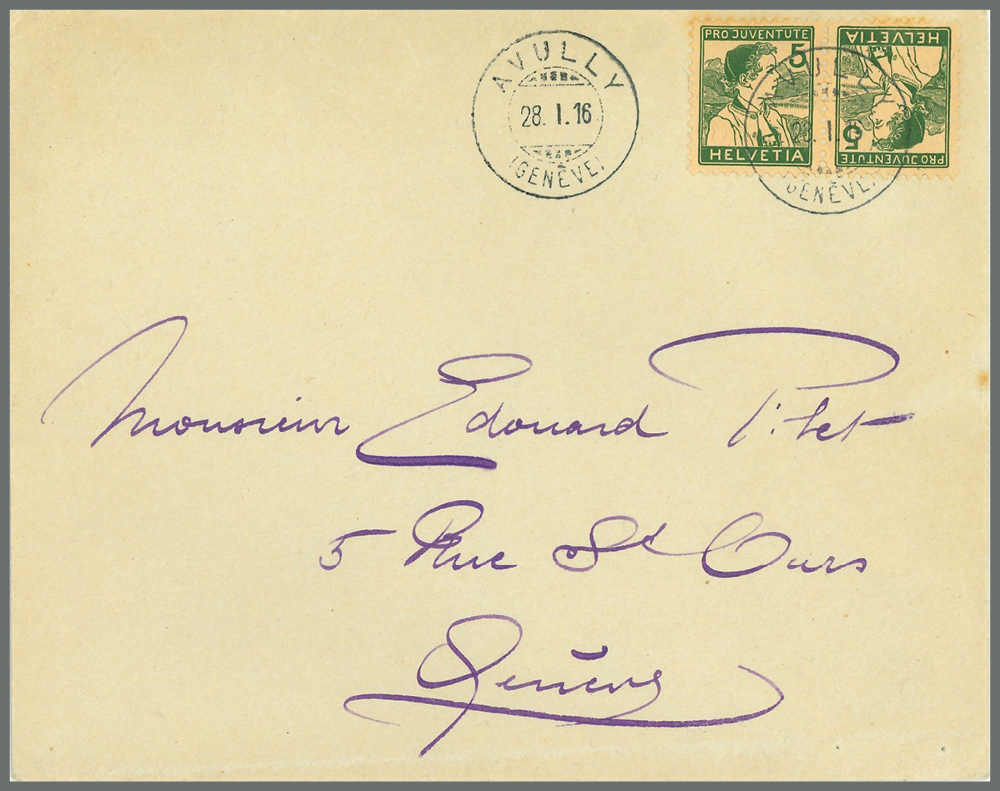 AVULLY
28. I. 16
(GENÈVE)
PRO JUVENTUTE
5
HELVETIA
HELVETIA
5
PRO JUVENTUTE
AVULLY
28. I. 16
(GENÈVE)
Monsieur Edouard Pitet
5 Rue St Ours
Genève